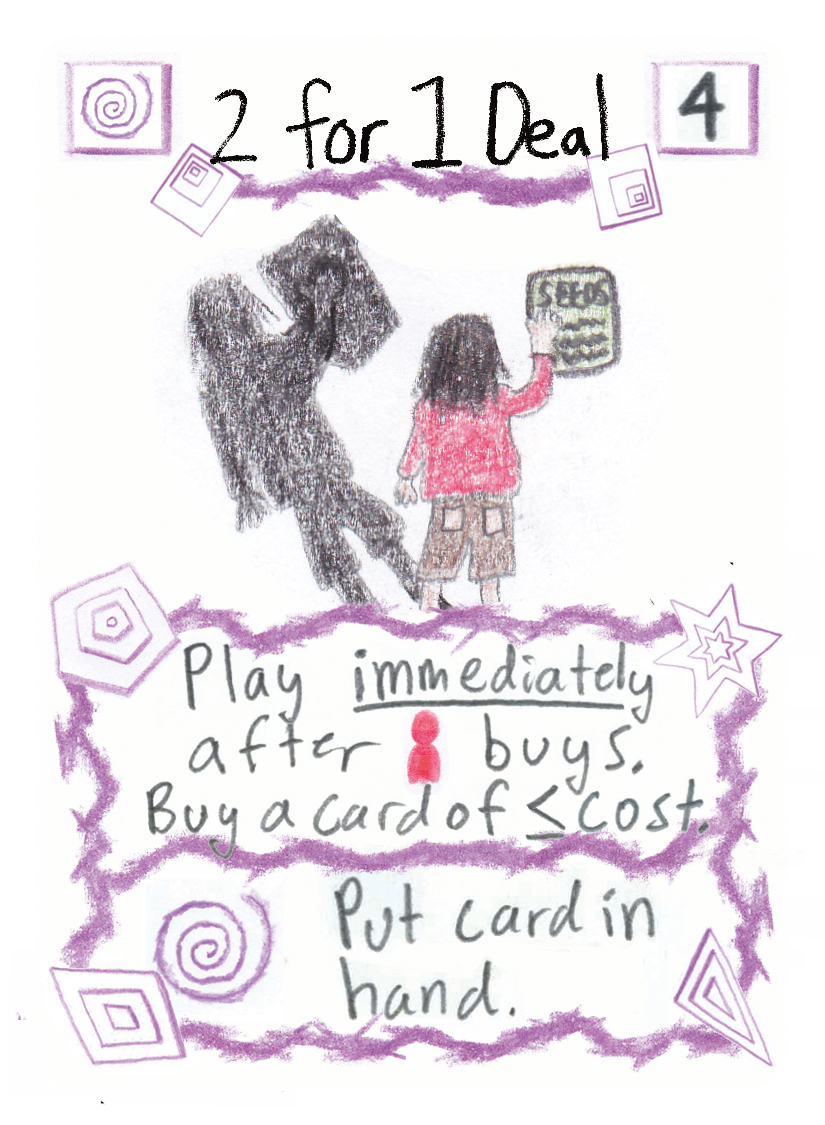 2 for 1 Deal
4
SEEDS
Play immediately
after buys.
Buy a card of ≤ cost.
Put card in
hand.